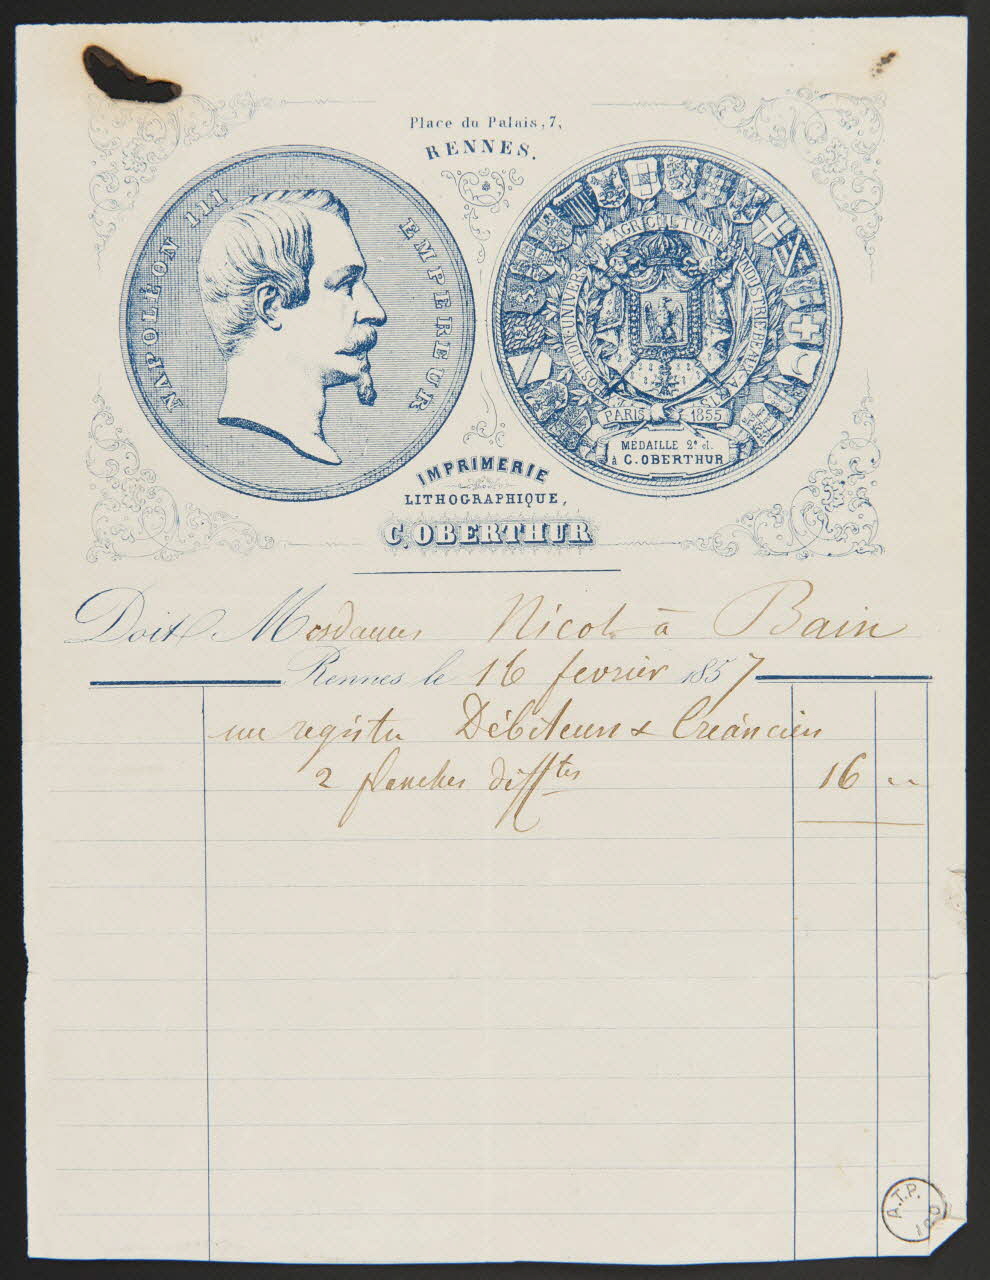 Place du Palais, 7,
RENNES.
NAPOLÉON III EMPEREUR
AGRICULTURE INDUSTRIE BEAUX ARTS
EXPOSITION UNIVERSELLE
PARIS 1855
MEDAILLE 2e cl.
à C. OBERTHUR
IMPRIMERIE
LITHOGRAPHIQUE,
C. OBERTHUR
Doit Mesdames Nicol à Bain
Rennes le 16 fevrier 1857
un registre Débiteurs & Créanciers
2 planches difftes 16 "
A.T.P.